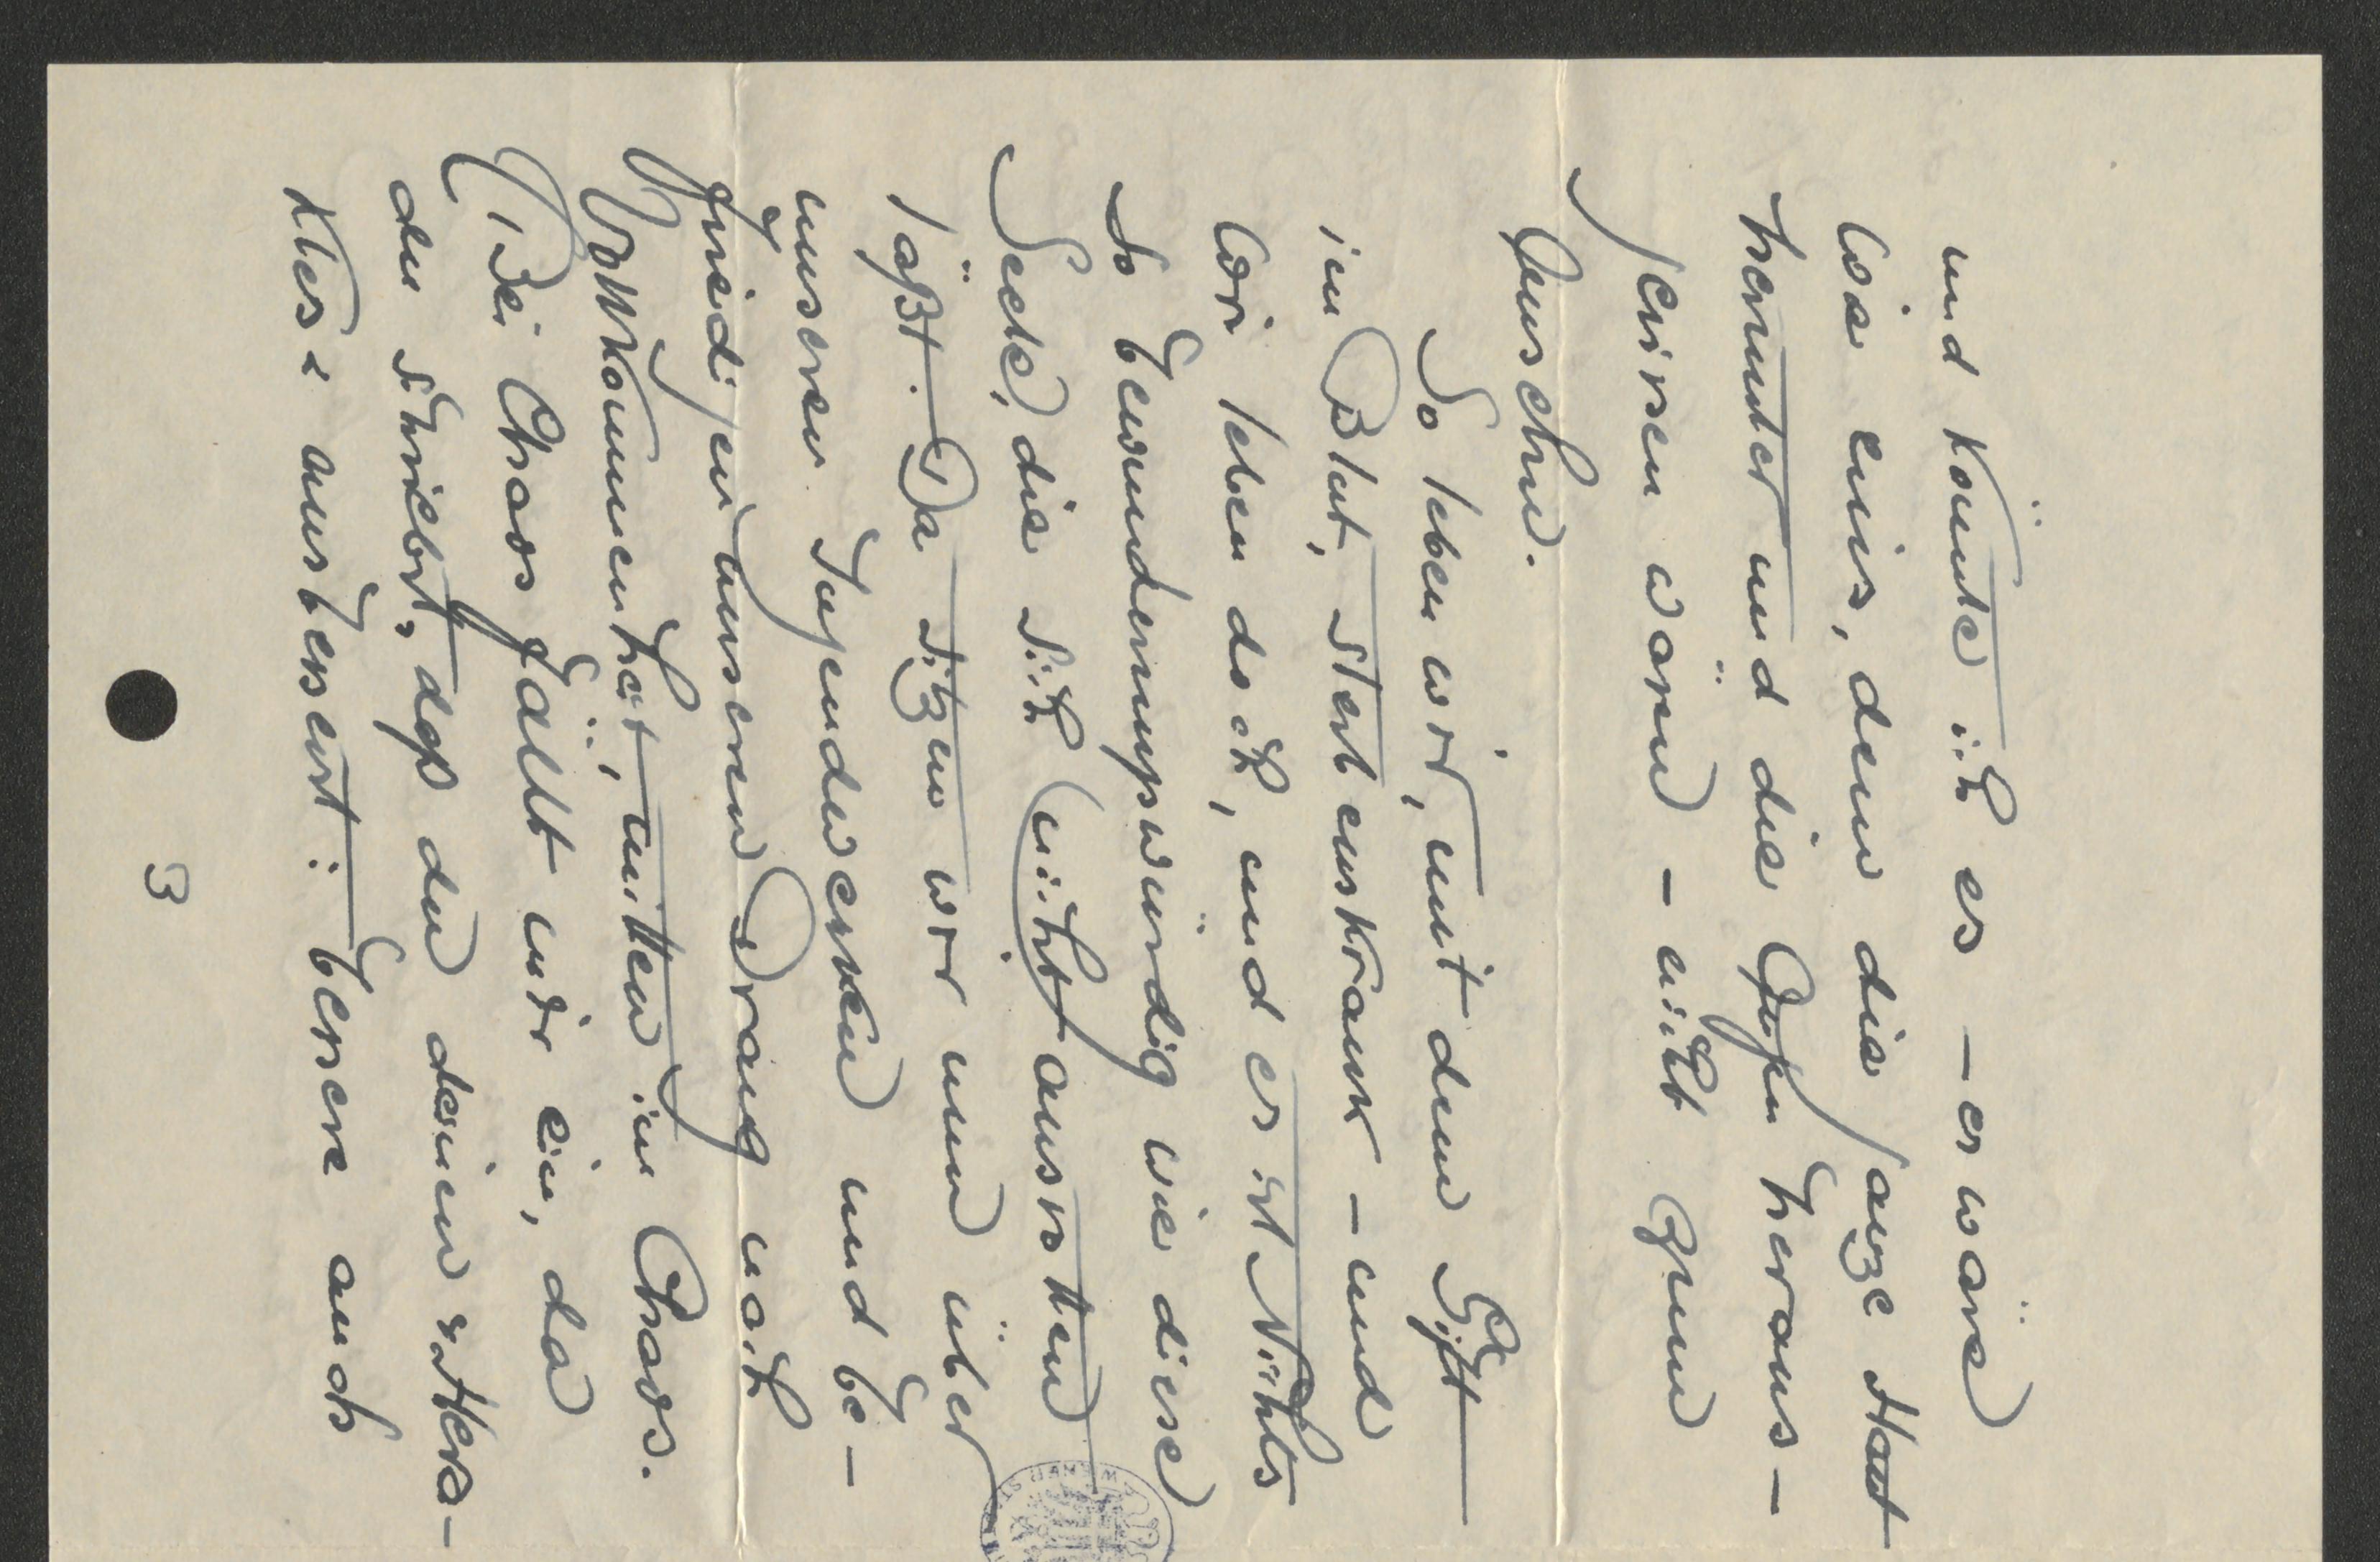 und könnte ich es – es wäre
wie eins, denn die ganze Haut
herunter und die Augen heraus-
gerissen wären – nicht zum
Ansehn.
So leben wir, mit dem Gift
im Blut, sterbenskrank – und
wir leben doch, und es ist Nichts
so bewundernswürdig wie diese
Seele, die sich nicht ausrotten
läßt. Da sitzen wir nun über
unseren Jugendwerken und be-
friedigen unseren Drang nach
Vollkommenheit, mitten im Chaos.
(Bei Chaos fällt mir ein, da
du schriebst, daß du deinen
klese ausbesserst: bessere auch
3